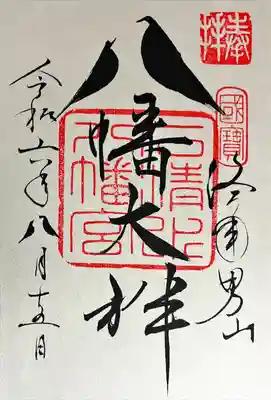 奉拝
國寶
洛南男山
八幡大神
石清水
八幡宮
令和六年八月十五日